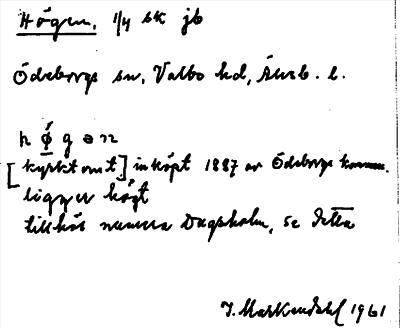 Högen. 1/4 sk jb
Ödeborgs sn, Valbo hd, Älvsb. l.
h ǿ g ə n
[kyrktomt] inköpt 1887 av Ödeborgs komm.
ligger högt
tillhör numera Dagsholm, se detta
J. Markendahl 1961